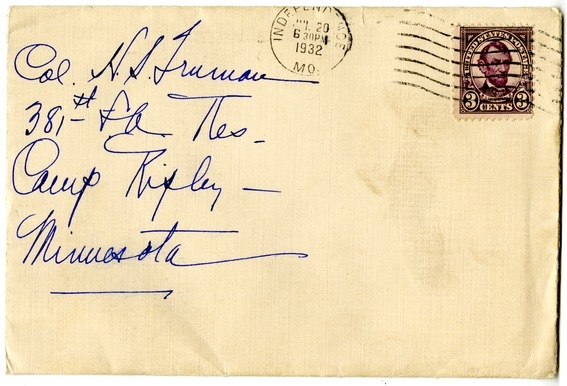 INDEPENDENCE
JUL 20
6 30 PM
1932
MO.
UNITED STATES POSTAGE
3 CENTS 3
Col. H.S. Truman
381st F.A. Res.
Camp Ripley
Minnesota